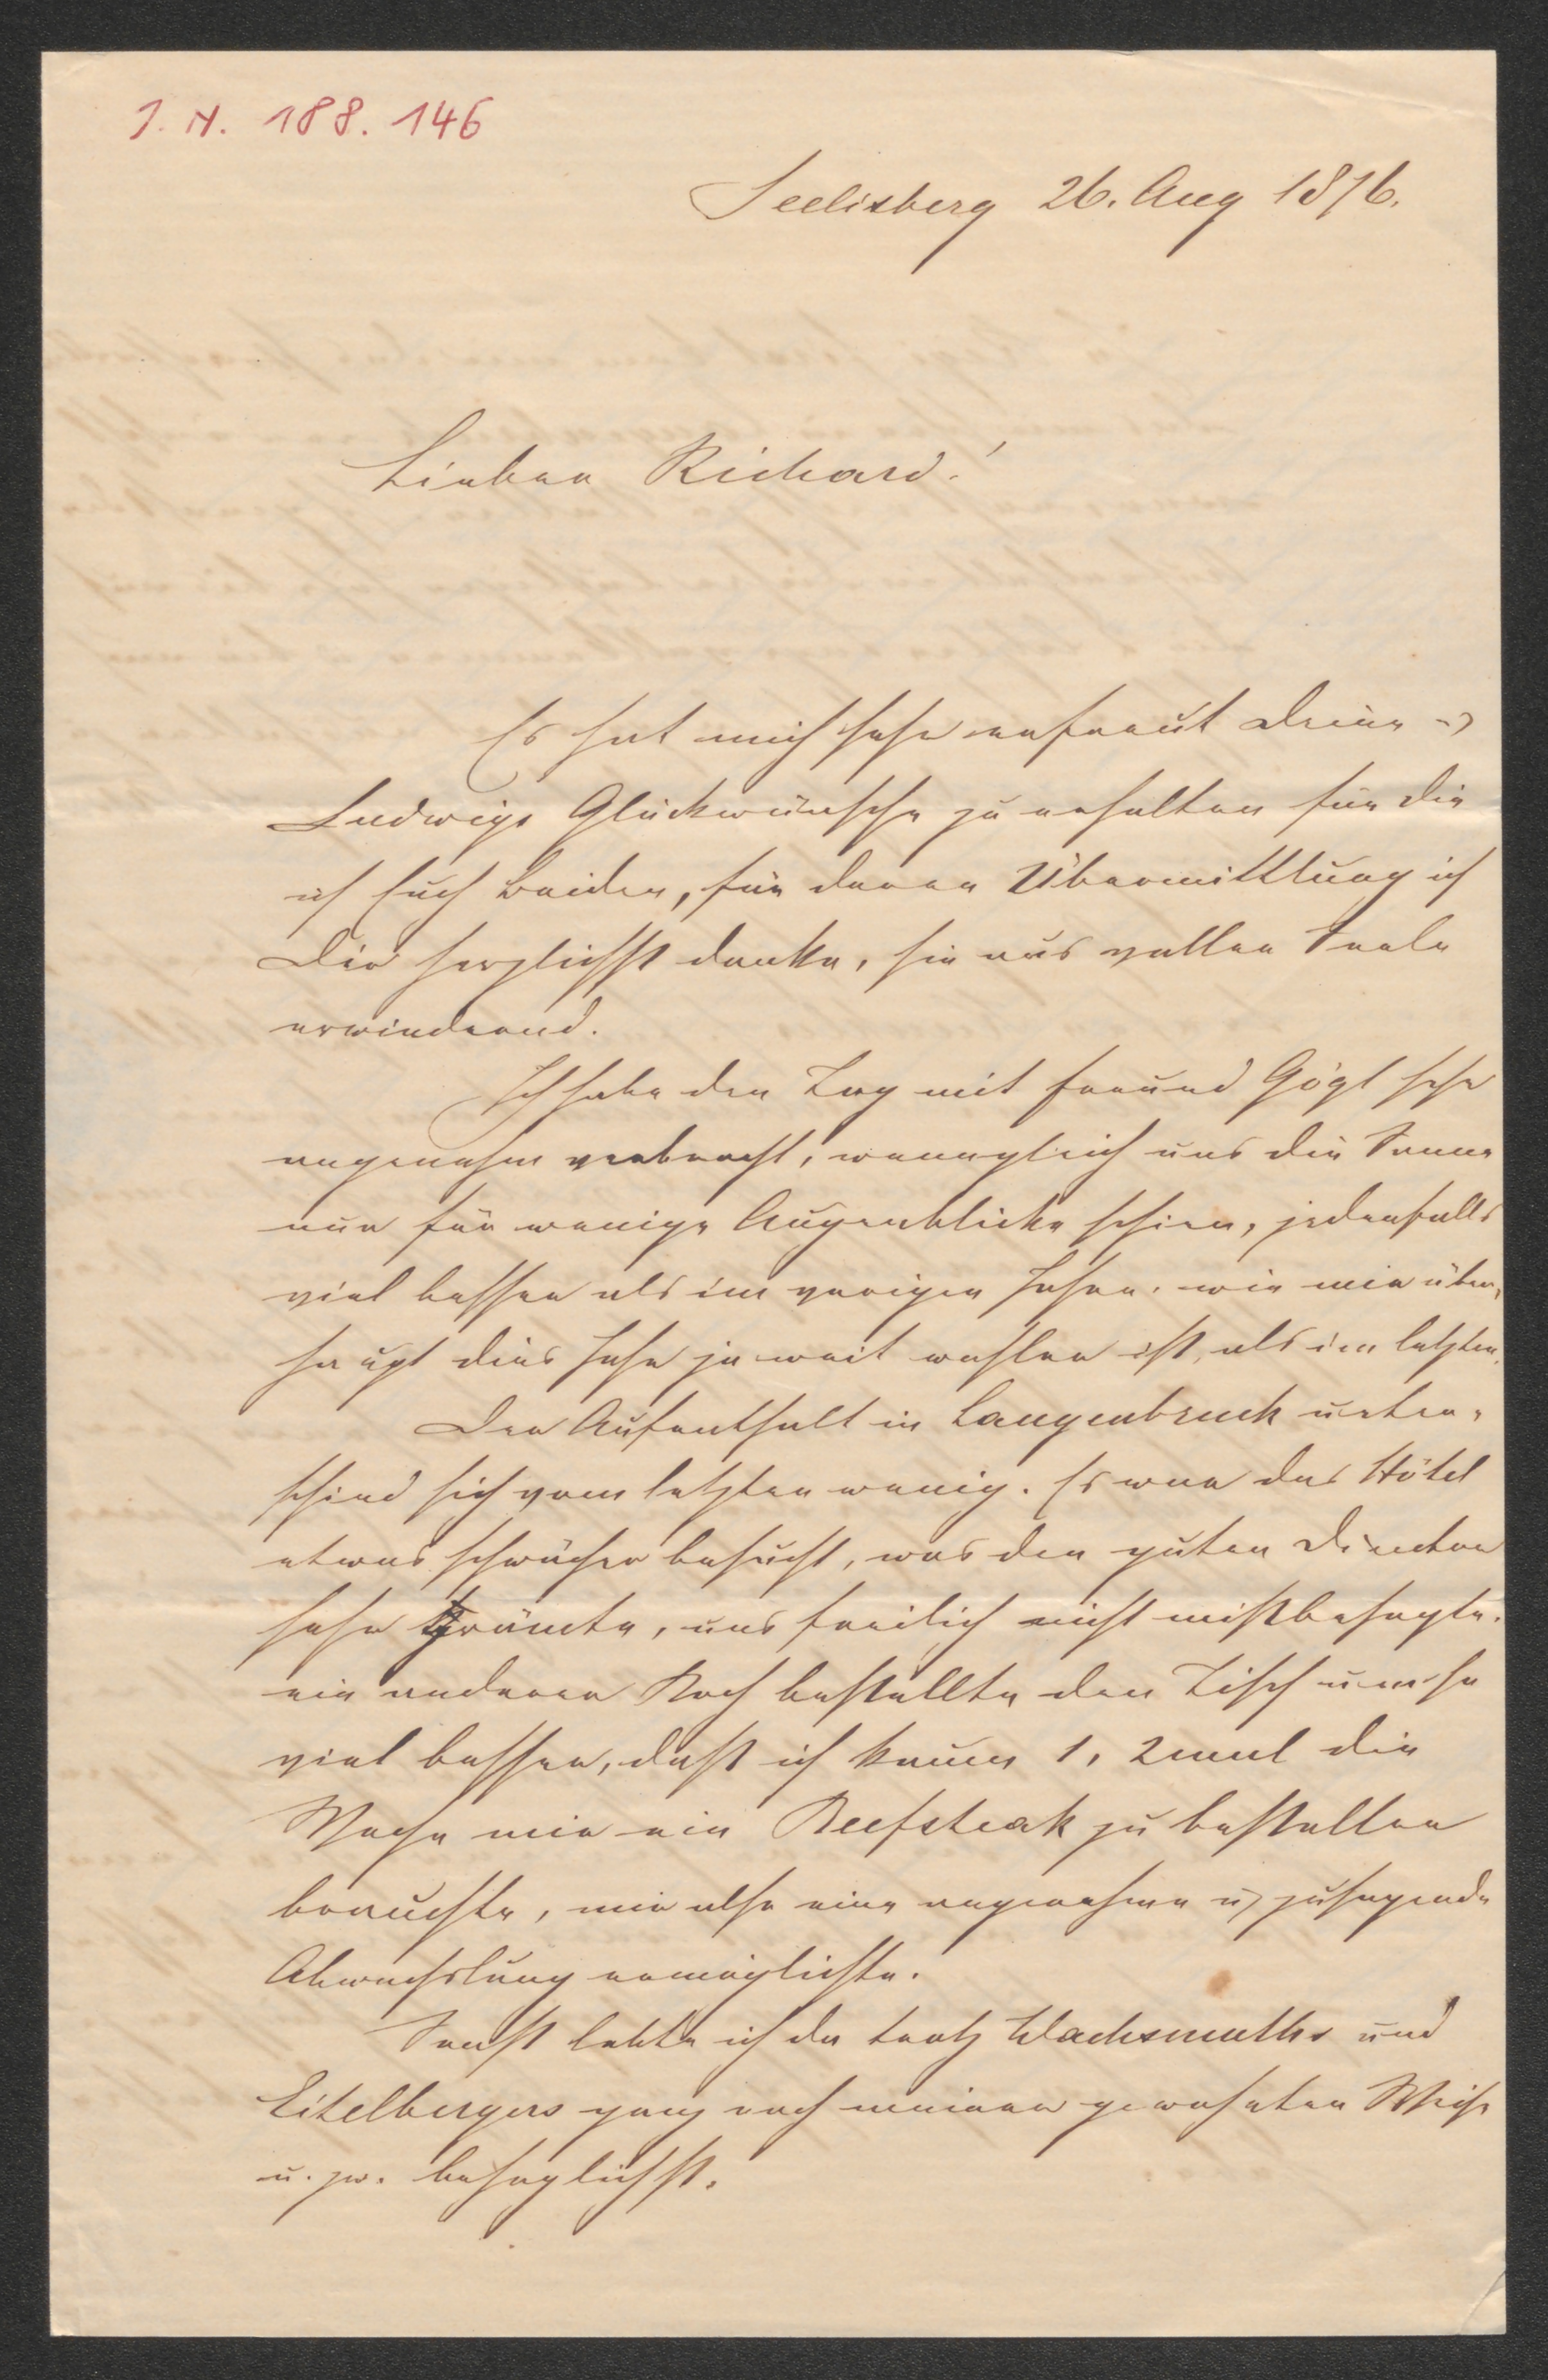 J. N. 188.146
Seelisberg 26. Aug 1876.
Lieber Richard!
Es hat mich sehr erfreut Deine u
Ludwigs Glückwünsche zu erhalten für die
ich Euch beiden, für deren Übermittlung ich
Dir herzlichst danke, sie aus voller Seele
erwiedernd.
Ich habe den Tag mit Freund Gögl sehr
angenehm verbracht, wenngleich uns die Sonne
nur für wenige Augenblicke schien, jedenfalls
viel besser als im vorigen Jahre. wie mir über,
haupt dies Jahr ja weit wohler ist, als im letzten.
Der Aufenthalt in Langenbruck unter,
schied sich vom letzten wenig. Es war das Hôtel
etwas schwächer besucht, was den guten Director
sehr grämte, uns freilich nicht mißbehagte.
ein anderer Koch bestellte den Tisch um so
viel besser, daß ich kaum 1, 2mal die
Woche mir ein Beefsteak zu bestellen
brauchte, mir also eine angenehme u zusagende
Abwechslung ermöglichte.
Sonst lebte ich da trotz Wachsmuths und
Eitelbergers ganz nach meiner gewohnten Weise
u. zw. behaglichst.